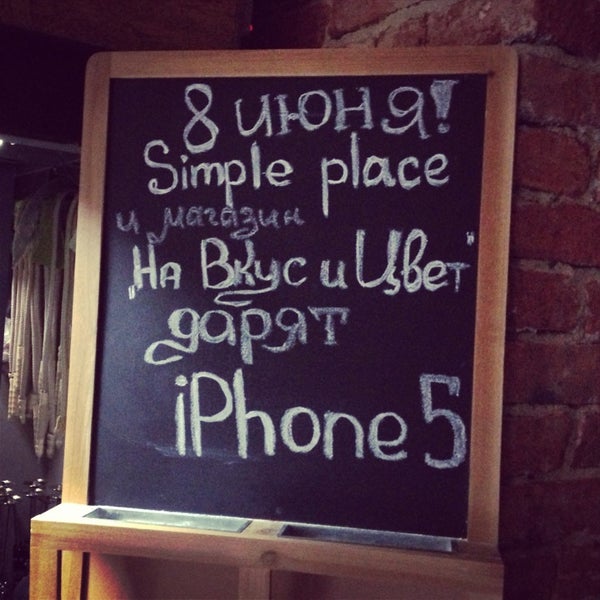 8 июня!
Simple place
и магазин
„На Вкус и Цвет"
дарят
iPhone 5